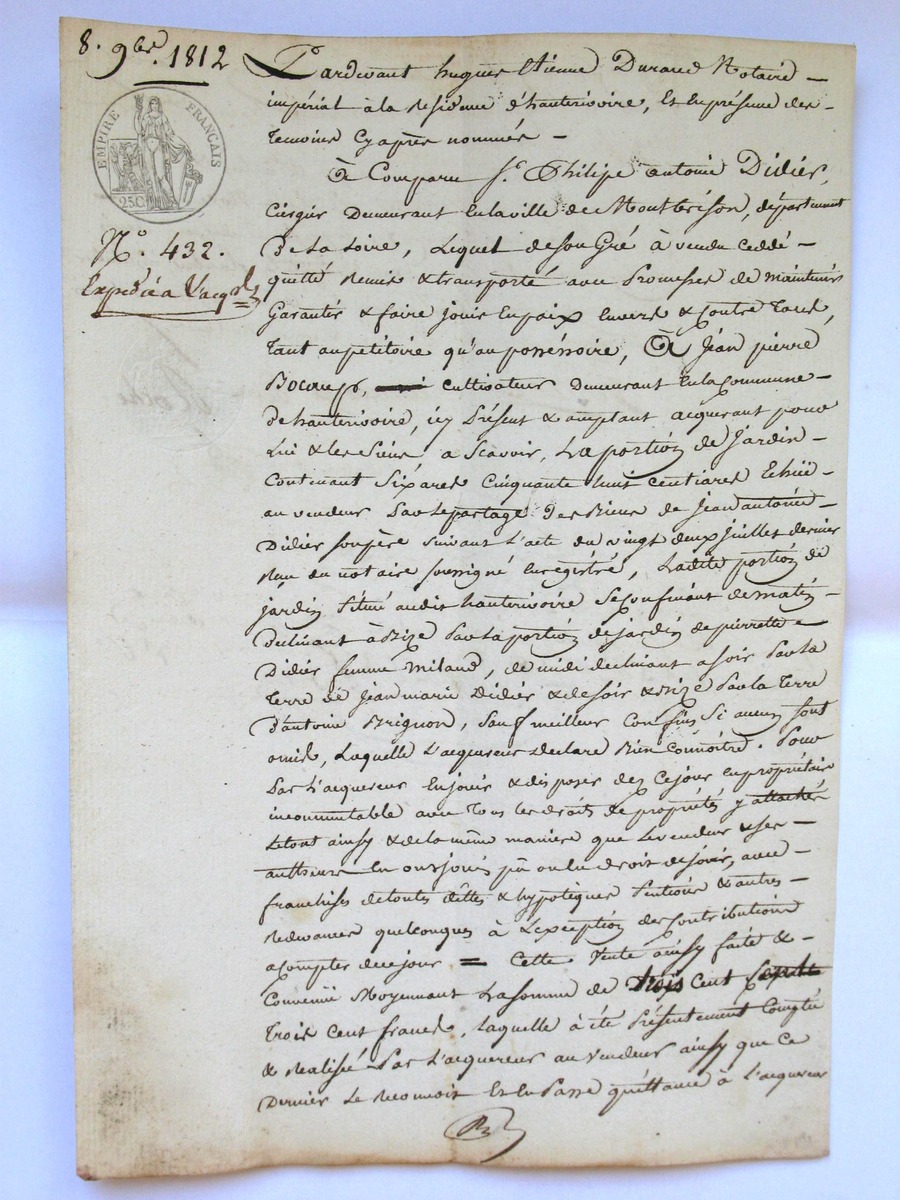 8. 9bre. 1812
EMPIRE FRANÇAIS
25C
N°. 432.
Expedié a l'acqr
Pardevant hugues Etienne Durand Notaire
imperial à la Residence d'hauterivoire, Et En présence des
temoins Cyaprès nommés
à Comparu Sr. Philipe antoine Didier,
Cirgier Demeurant En la ville de Montbrison, département
De La Loire, Lequel de son Gré à vendu ceddé
quitté Remis & transporté avec Promesses de maintenir
Garantir & faire jouir En paix Envers & Contre Tous,
Tant au petitoire qu'au possessoire, à Jean pierre
cultivateur Demeurant En la Commune
de hauterivoire, icy Présent & acceptant acquerant pour
Lui & les Siens a Scavoir, La portion de Jardin
Contenant Six ares Cinquante huit Centiares Echüe
au vendeur Par Le partage Des Biens de Jean antoine
Didier son père suivant L'acte du vingt deux Juillet dernier
Reçu du notaire soussigné Enregistré, Ladite portion de
jardin Situé audit hauterivoire Se Confinant de matin
Declinant à Bize Par La portion de jardin de pierrette
Didier femme Miland, de midi declinant a soir Par La
Terre de Jean marie Didier & de soir & Bize Par la Terre
d'antoine Brignon, Sauf meilleur Confins Si aucun Sont
omis, Laquelle L'acquereur declare Bien Connoître. Pour
Par L'acquereur En jouir & disposer des Ce jour En propriétaire
incommutable avec Tous les droits de propriétés y attachés
Le tout ainsy & de la même maniere que Le vendeur & ses
autheurs En ont joui pû ou du droit de jouir, avec
franchises de toutes dettes & hypotèques Pentions & autres
Redevances quelconques à L'exception des Contributions
a Compter de ce jour = Cette Vente ainsy faite &
Convenue Moyennant La somme de trois Cent
Trois Cent francs, Laquelle à été Présentement Comptée
& Realisée Par L'acquereur au Vendeur ainsy que Ce
Dernier Le Reconnoit Et En Passe quittance à L'acquereur